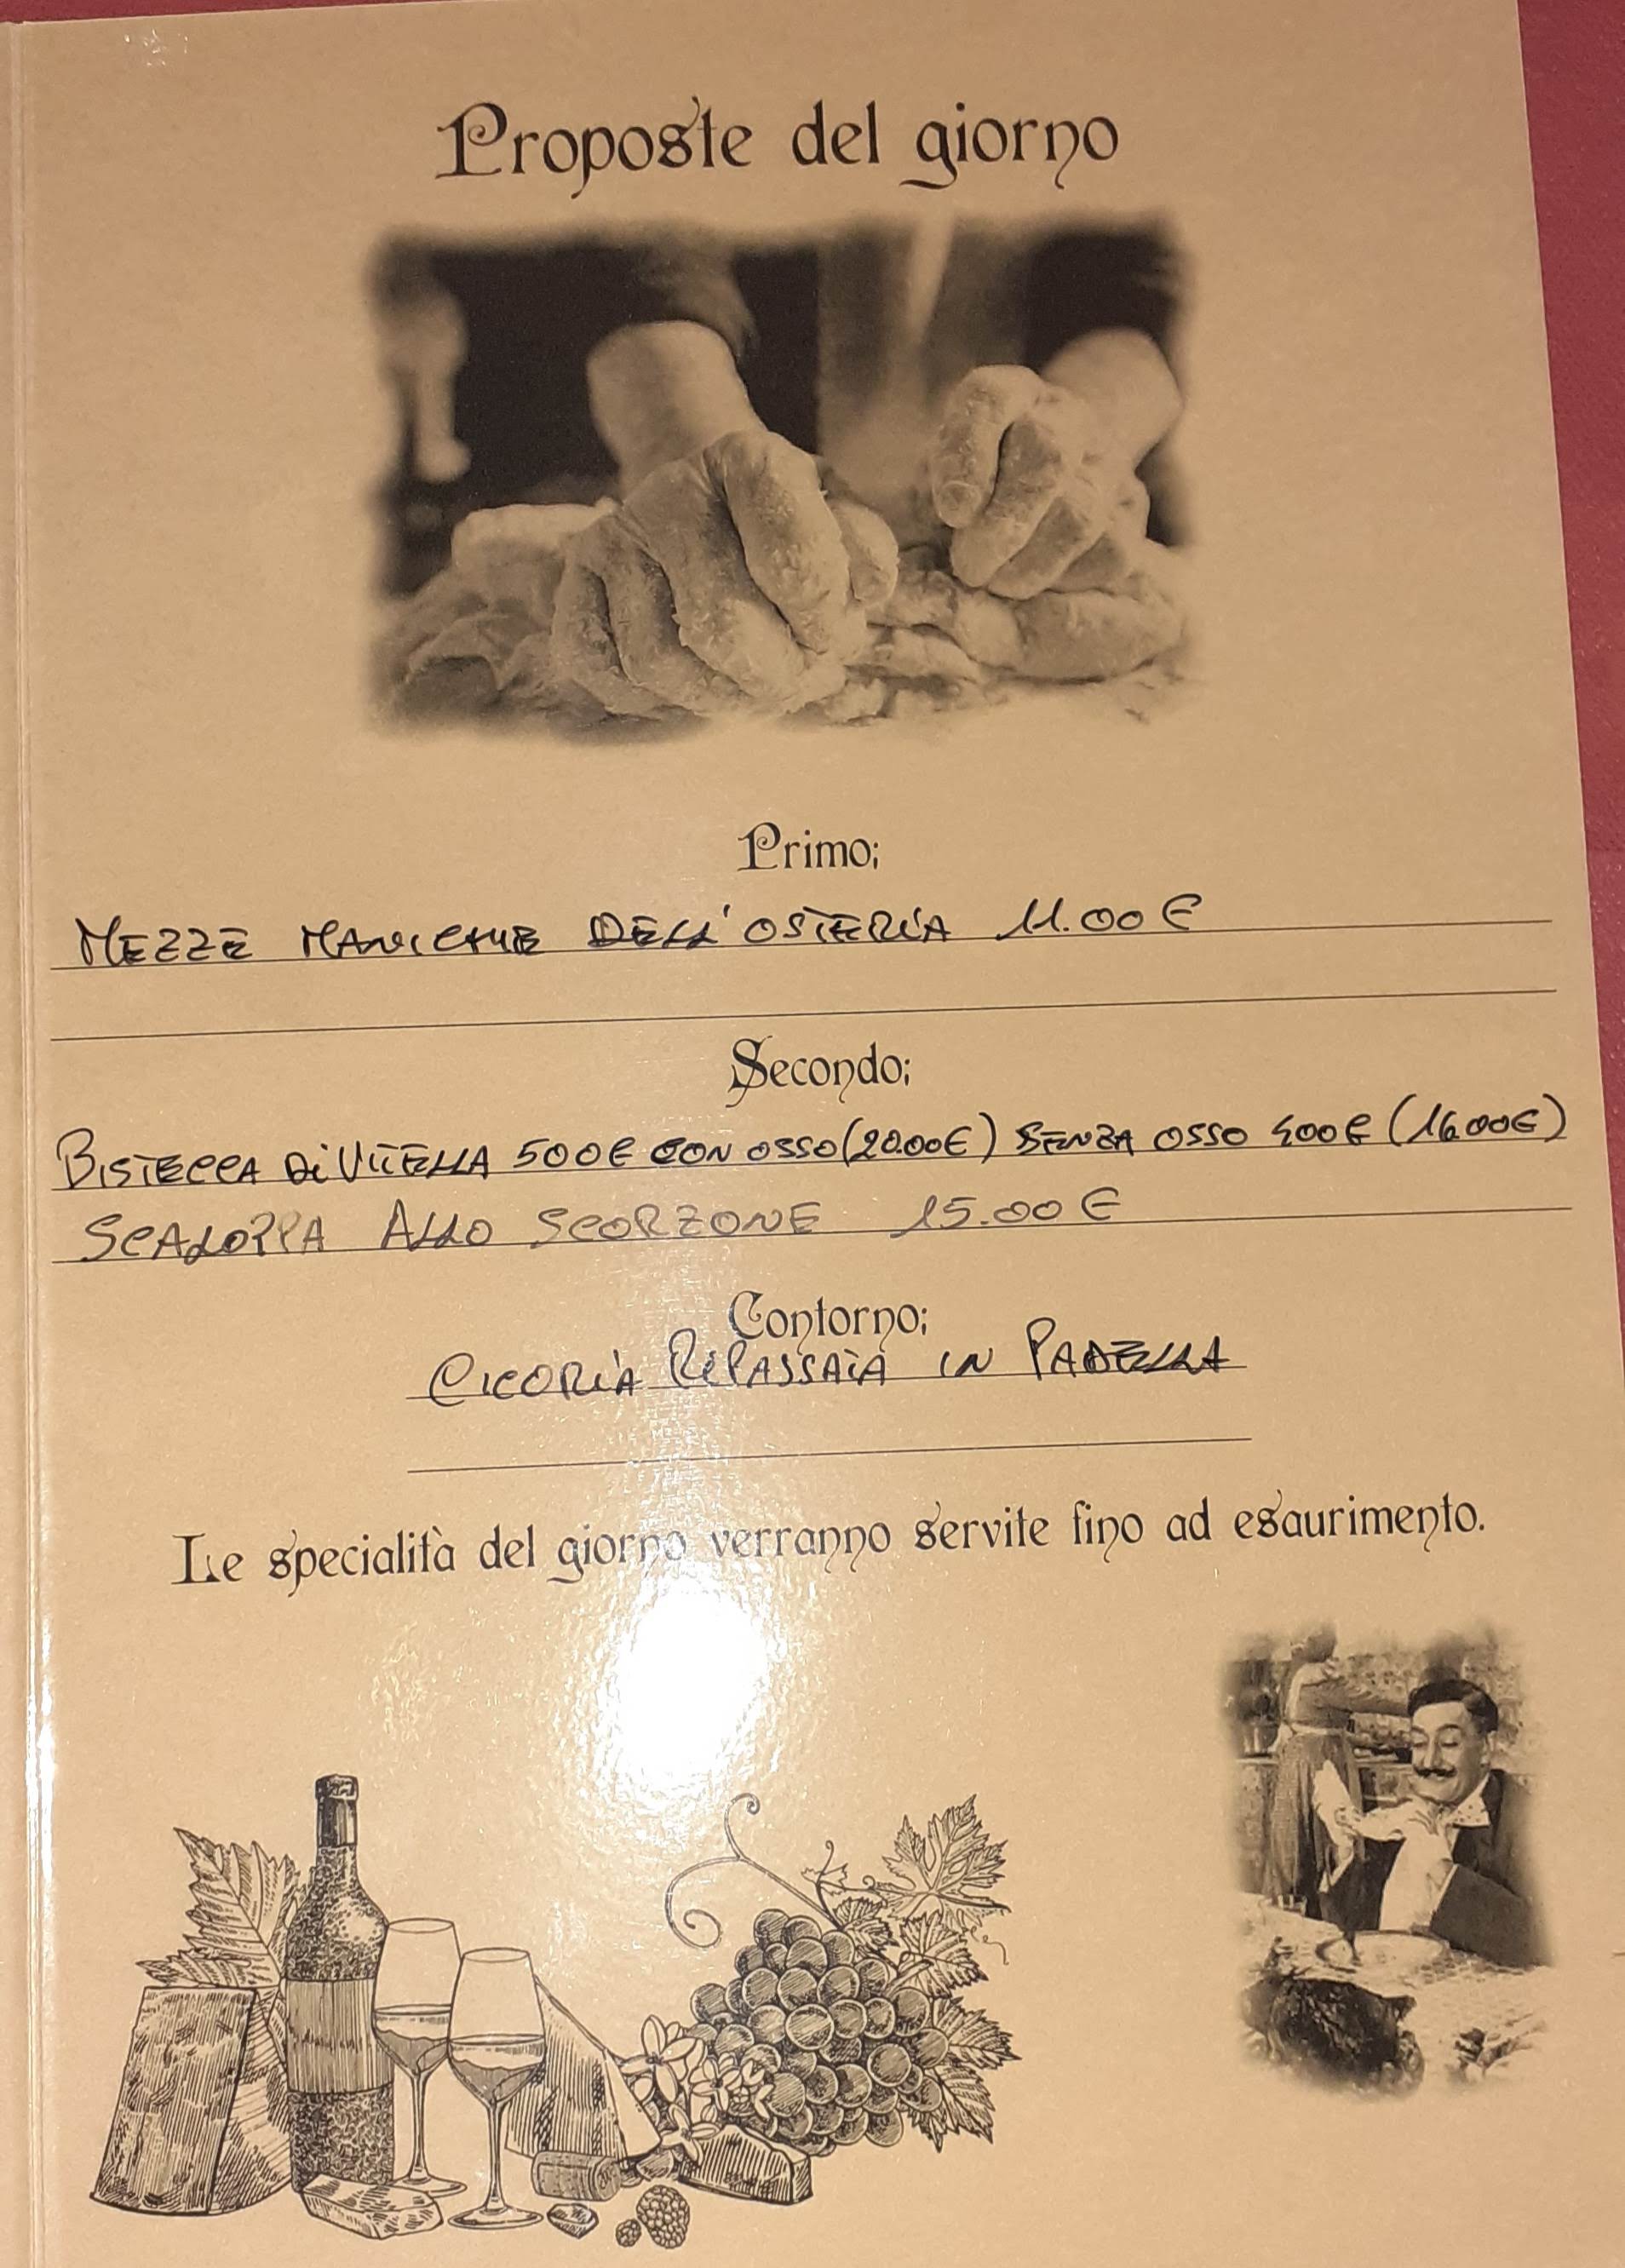 Proposte del giorno
Primo;
MEZZE MANICHE DELL'OSTERIA 11.00€
Secondo;
BISTECCA Di VITELLA 500G CON OSSO (20.00€) SENZA OSSO 400G (16.00€)
SCALOPPA ALLO SCORZONE 15.00€
Contorno;
CICORIA RIPASSATA IN PADELLA
Le specialità del giorno verranno servite fino ad esaurimento.